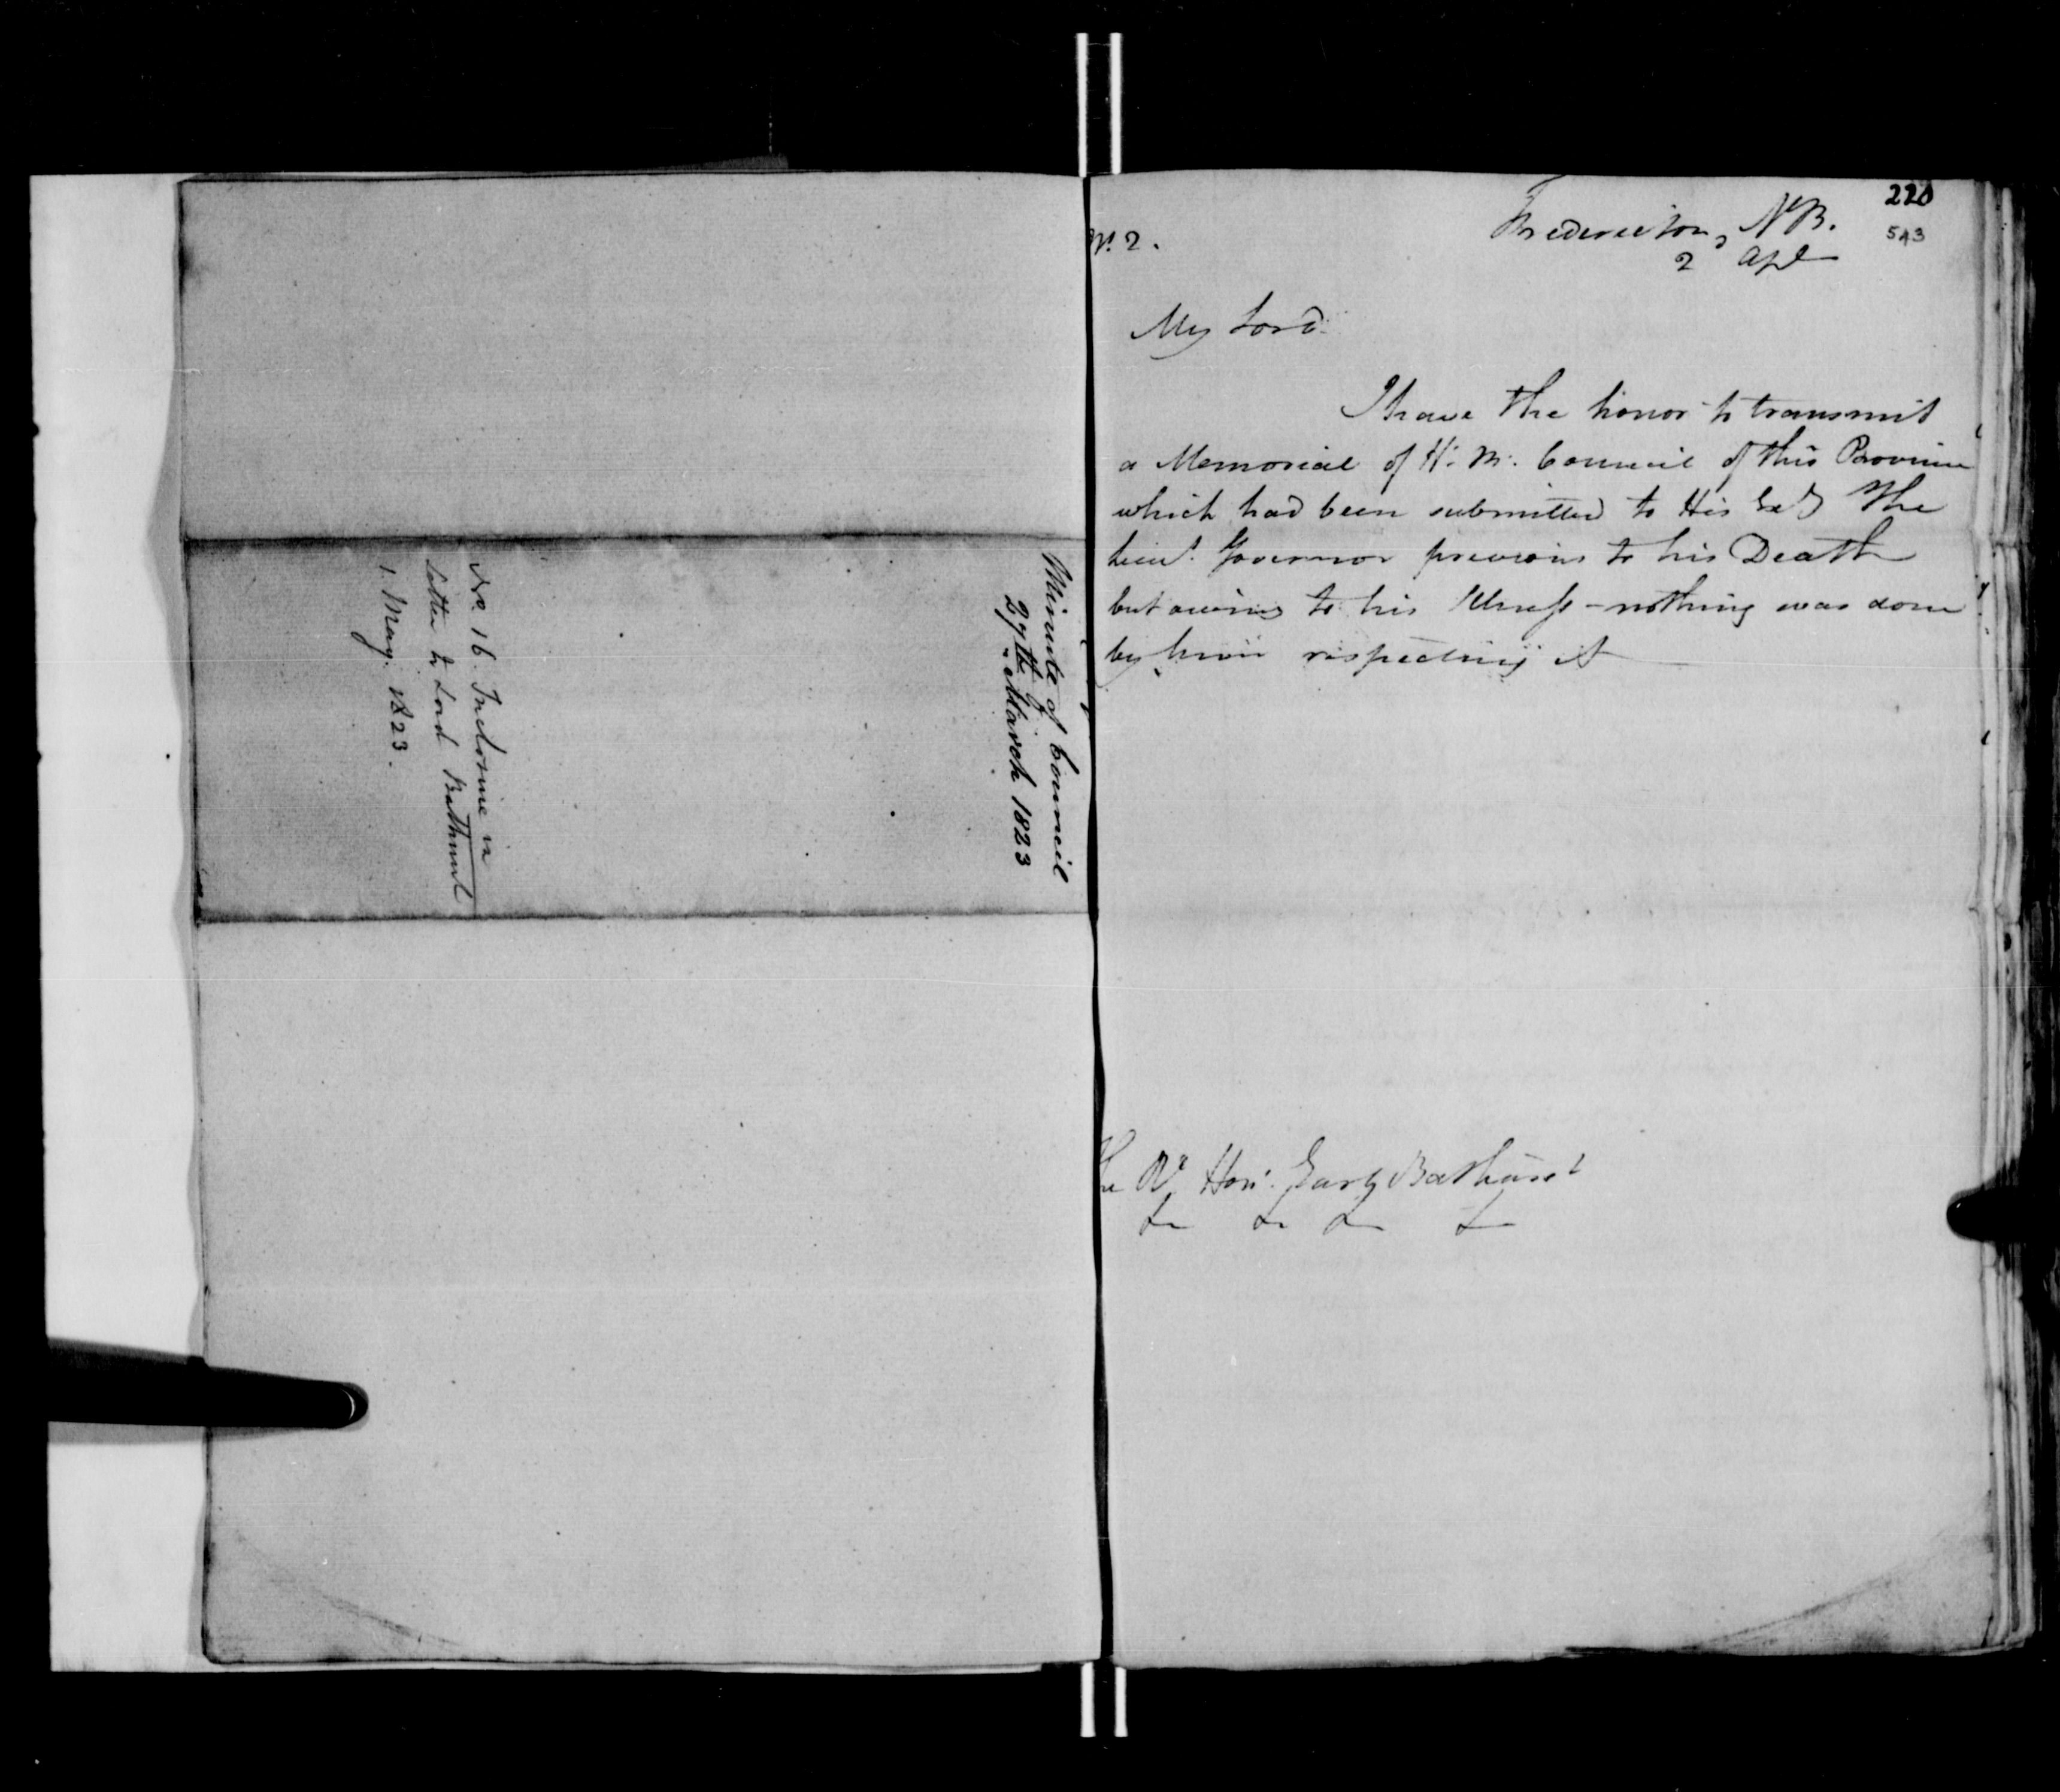 Minute of Council
27th March 1823
No. 16. Inclosure in
Letter to Lord Bathurst
1. May. 1823.
220
543
No. 2.
Fredericton, NB.
2 Apl
My Lord
I have the honor to transmit
a Memorial of H. M. Council of this Province
which had been submitted to His Exy the
Lieut. Governor previous to his Death
but owing to his Illness - nothing was done
by him respecting it
The Rt Hon. Earl Bathurst
&c &c &c &c